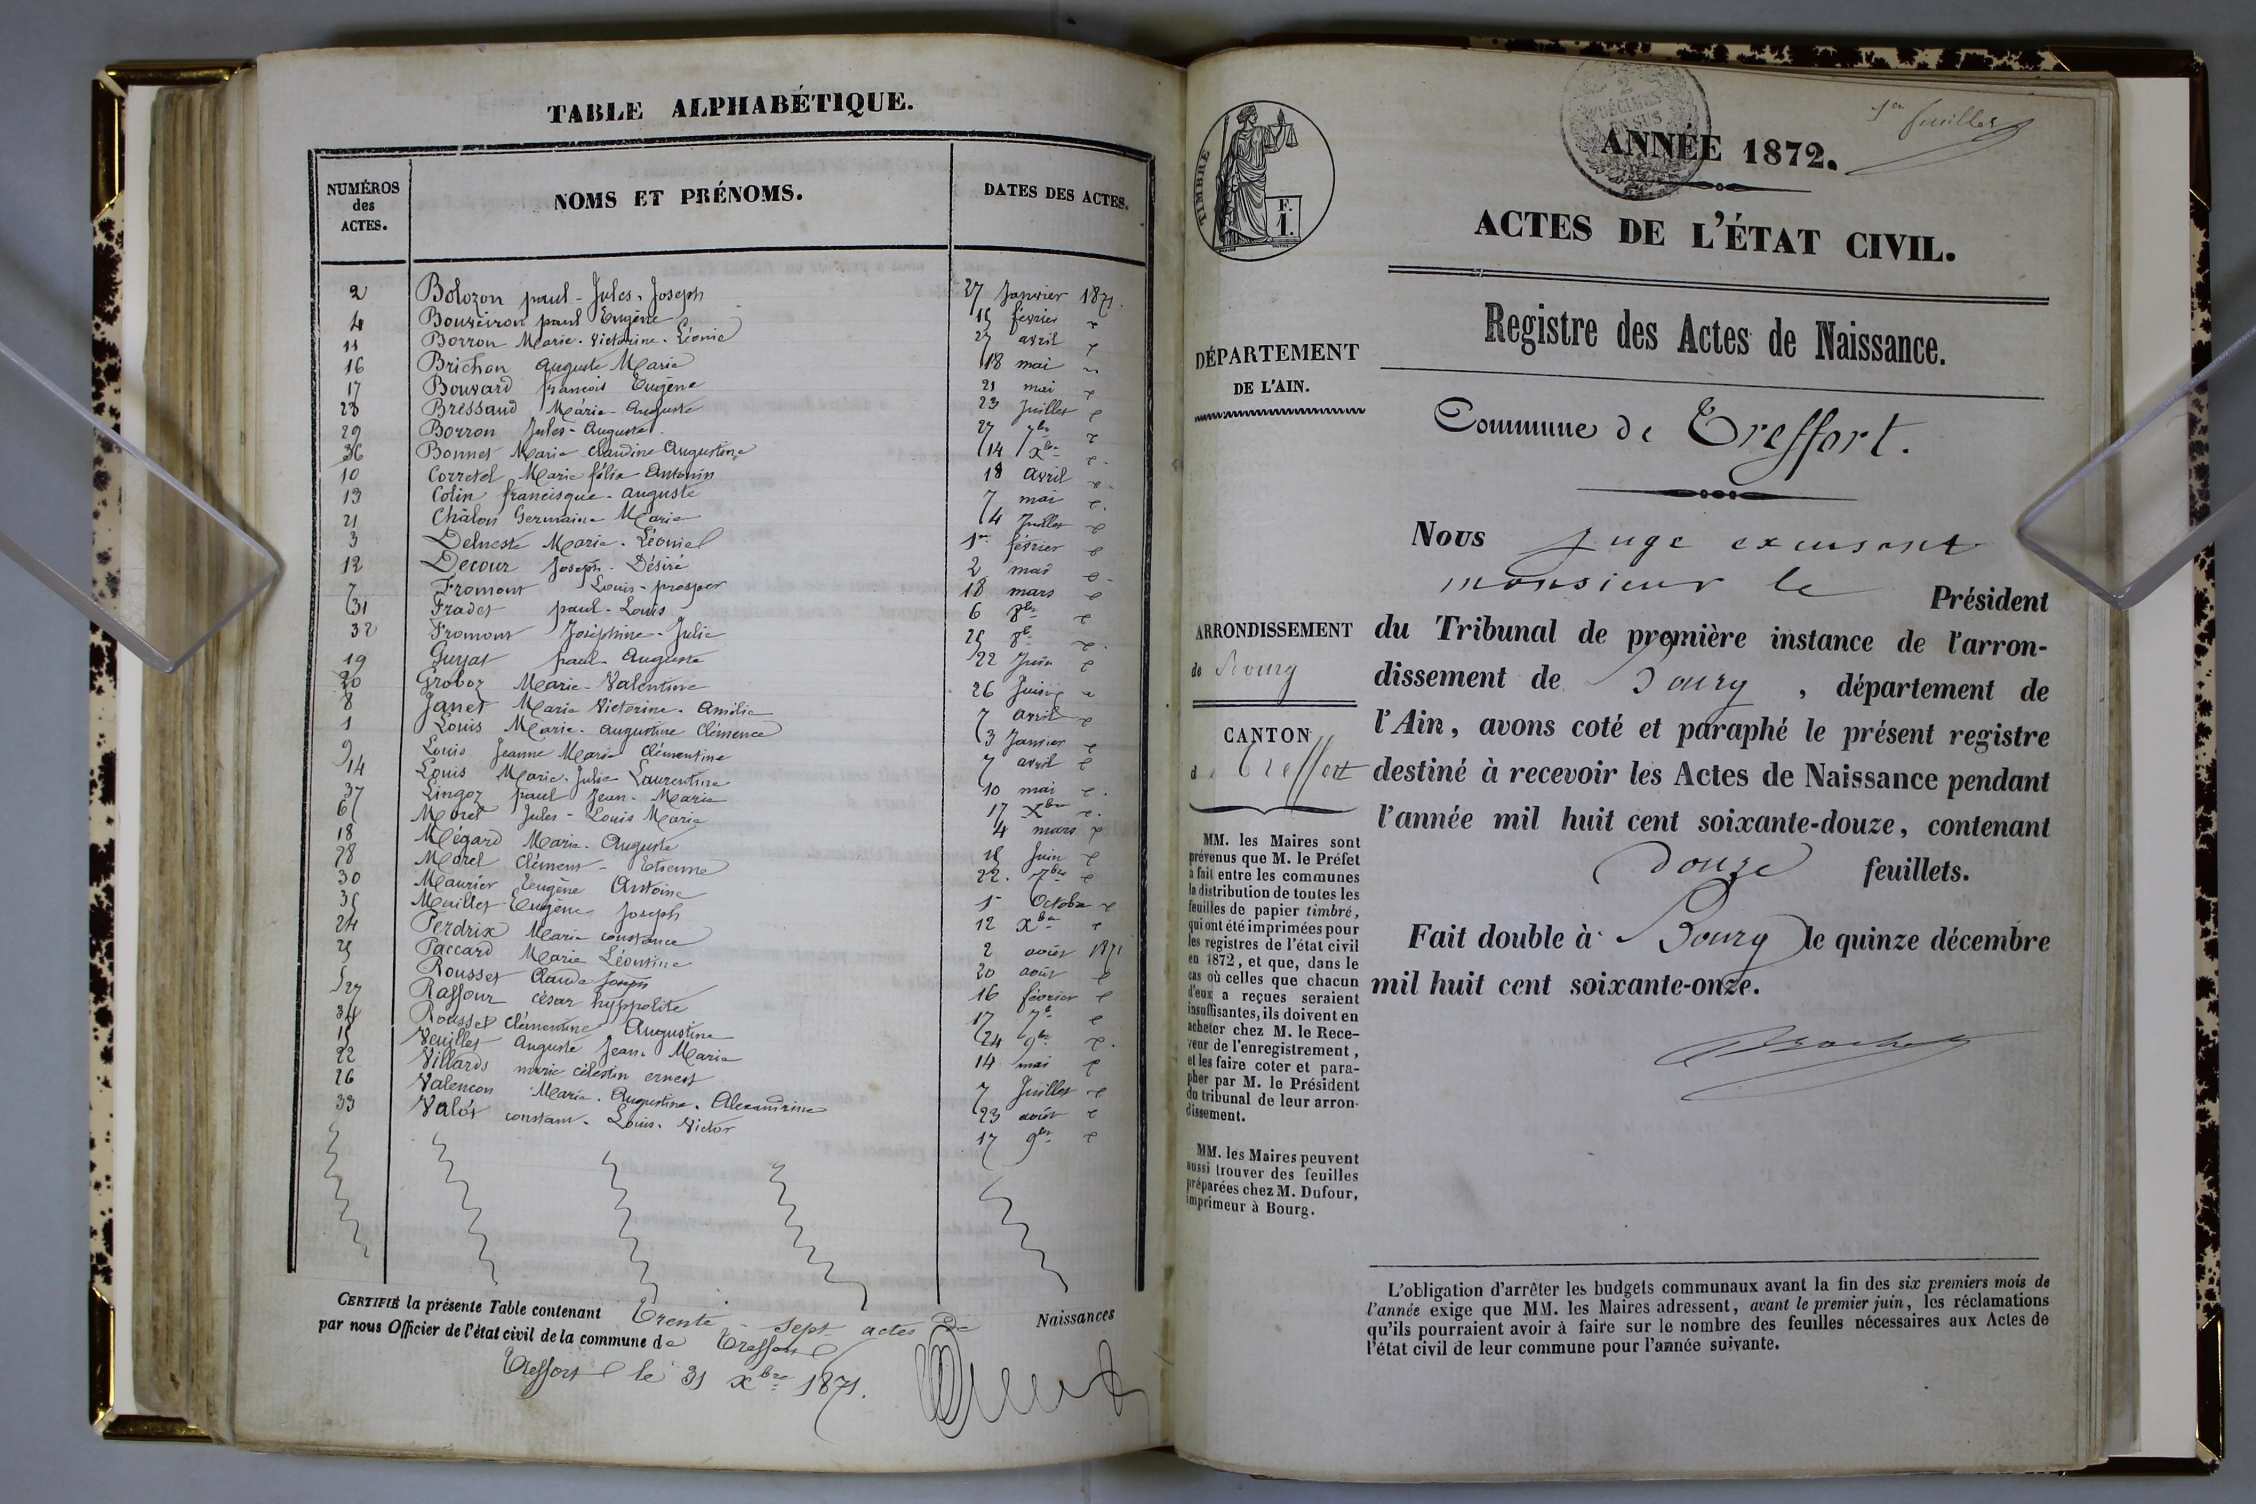 TABLE ALPHABÉTIQUE.
NUMÉROS des ACTES.
NOMS ET PRÉNOMS.
DATES DES ACTES.
2 Bolozon paul - Jules - Joseph 27 Janvier 1871.
4 Bouveiron paul Eugène 15 février
11 Borron Marie - Victorine - Léonie 27 avril
16 Brichon auguste Marie 18 mai
17 Bouvard francois Eugène 21 mai
23 Bressaud Marie - Auguste 23 Juillet
29 Borron Jules - Auguste 27 7bre
36 Bonnet Marie - Claudine Augustine 14 Xbre
10 Corretel Marie félix - Antonin 18 avril
13 Colin francisque - auguste 7 mai
21 Châlon Germaine Marie 4 Juillet
3 Marie - Léonie 1er février
12 Decour Joseph - Désiré 2 mai
7 Fromont Louis - prosper 18 mars
31 Frades paul - Louis 6 8bre
32 Fromont Joséphine - Julie 25 8bre
19 Guyat paul - Auguste 22 Juin
20 Groboz Marie - Valentine 26 Juin
8 Janet Marie Victorine - Amélie 7 avril
1 Louis Marie - augustine Clémence 3 Janvier
9 Louis Jeanne Marie Clémentine 7 avril
14 Louis Marie - Julie Laurentine 10 mai
37 Lingoz paul Jean - Marie 17 Xbre
6 Morel Jules - Louis Marie 4 mars
18 Mégard Marie - Auguste Juin
28 Morel Clément - Etienne 22 7bre
30 Maurier Eugène Antoine 1er Octobre
35 Maillet Eugène Joseph 12 Xbre
24 Perdrix Marie constance 2 août 1871
25 Paccard Marie Léontine 20 août
5 Rousset Claude Joseph 16 février
27 Raffour césar hyppolite 17 7bre
34 Rousset Clémentine Augustine 24 9bre
15 Veuillet Auguste Jean - Marie 14 mai
22 Villards marie célestin ernest 7 Juillet
26 Valencon Marie - Augustine - Alexandrine 23 août
33 Valót constant - Louis - Victor 17 9bre
CERTIFIÉ la présente Table contenant Trente - sept actes de Naissances
par nous Officier de l'état civil de la commune de Treffort
Treffort le 31 Xbre 1871.
1er feuillet
2 DÉCIMES EN SUS
TIMBRE
F. 1.
ANNÉE 1872.
ACTES DE L'ÉTAT CIVIL.
Registre des Actes de Naissance.
DÉPARTEMENT
DE L'AIN.
Commune de Treffort.
ARRONDISSEMENT
de Bourg
CANTON
de Treffort
MM. les Maires sont
prévenus que M. le Préfet
a fait entre les communes
la distribution de toutes les
feuilles de papier timbré,
qui ont été imprimées pour
les registres de l'état civil
en 1872, et que, dans le
cas où celles que chacun
d'eux a reçues seraient
insuffisantes, ils doivent en
acheter chez M. le Rece-
veur de l'enregistrement,
et les faire coter et para-
pher par M. le Président
du tribunal de leur arron-
dissement.
MM. les Maires peuvent
aussi trouver des feuilles
préparées chez M. Dufour,
imprimeur à Bourg.
Nous juge excusant
monsieur le Président
du Tribunal de première instance de l'arron-
dissement de Bourg, département de
l'Ain, avons coté et paraphé le présent registre
destiné à recevoir les Actes de Naissance pendant
l'année mil huit cent soixante-douze, contenant
douze feuillets.
Fait double à Bourg le quinze décembre
mil huit cent soixante-onze.
L'obligation d'arrêter les budgets communaux avant la fin des six premiers mois de
l'année exige que MM. les Maires adressent, avant le premier juin, les réclamations
qu'ils pourraient avoir à faire sur le nombre des feuilles nécessaires aux Actes de
l'état civil de leur commune pour l'année suivante.